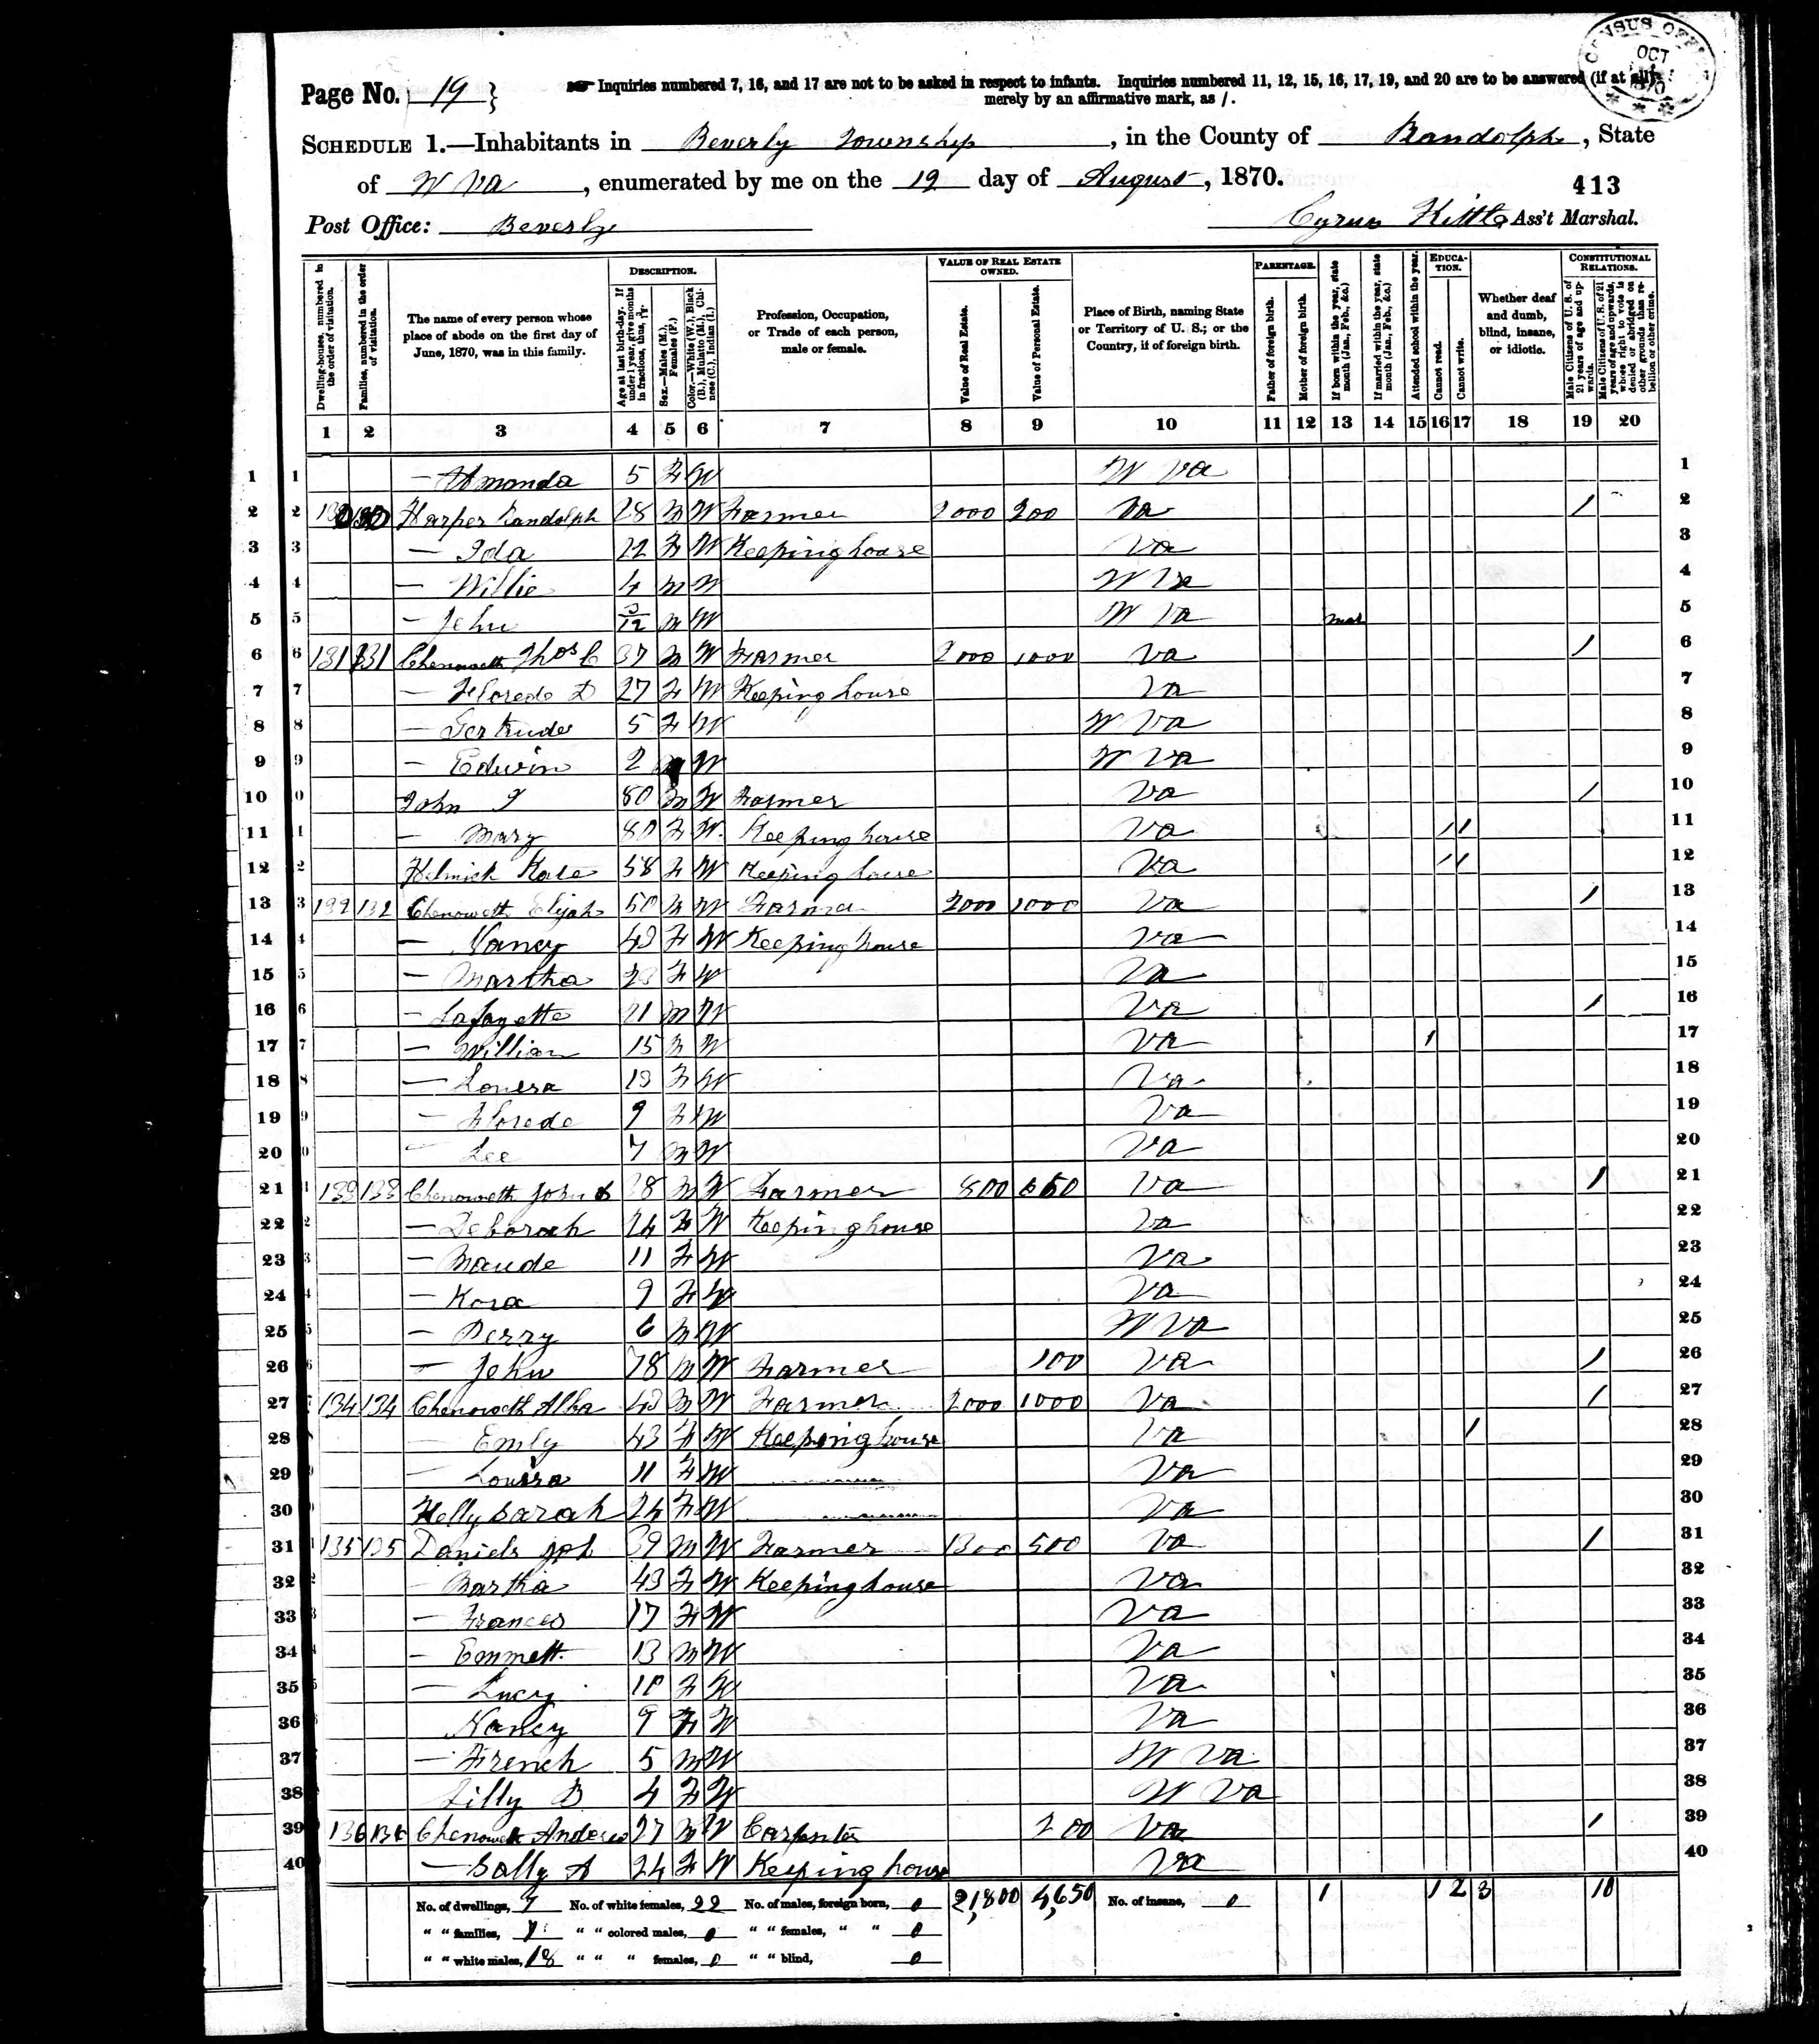 CENSUS OFFICE OCT 1870
Page No. 19
Inquiries numbered 7, 16, and 17 are not to be asked in respect to infants. Inquiries numbered 11, 12, 15, 16, 17, 19, and 20 are to be answered (if at all)
merely by an affirmative mark, as /.
SCHEDULE 1.—Inhabitants in Beverly Township, in the County of Randolph, State
of W Va, enumerated by me on the 19 day of August, 1870.
413
Post Office: Beverly
Cyrus Kittle, Ass't Marshal.
Dwelling-houses, numbered in the order of visitation.
Families, numbered in the order of visitation.
The name of every person whose place of abode on the first day of June, 1870, was in this family.
DESCRIPTION.
Age at last birth-day. If under 1 year, give months in fractions, thus, 3/12.
Sex.—Males (M.), Females (F.)
Color.—White (W.), Black (B.), Mulatto (M.), Chinese (C.), Indian (I.)
Profession, Occupation, or Trade of each person, male or female.
VALUE OF REAL ESTATE OWNED.
Value of Real Estate.
Value of Personal Estate.
Place of Birth, naming State or Territory of U. S.; or the Country, if of foreign birth.
PARENTAGE.
Father of foreign birth.
Mother of foreign birth.
If born within the year, state month (Jan., Feb., &c.)
If married within the year, state month (Jan., Feb., &c.)
Attended school within the year.
EDUCATION.
Cannot read.
Cannot write.
Whether deaf and dumb, blind, insane, or idiotic.
CONSTITUTIONAL RELATIONS.
Male Citizens of U. S. of 21 years of age and upwards.
Male Citizens of U. S. of 21 years of age and upwards, whose right to vote is denied or abridged on other grounds than rebellion or other crime.
1 2 3 4 5 6 7 8 9 10 11 12 13 14 15 16 17 18 19 20
1 — Amanda 5 F W W Va 1
2 130 130 Harper Randolph 28 M W Farmer 2000 200 Va / 2
3 — Ida 22 F W Keeping house Va 3
4 — Willie 4 M W W Va 4
5 — John 3/12 M W W Va Mar 5
6 131 131 Chenoweth Thos C 37 M W Farmer 2000 1000 Va / 6
7 — Florede D 27 F W Keeping house Va 7
8 — Gertrude 5 F W W Va 8
9 — Edwin 2 M W W Va 9
10 John I 80 M W Farmer Va / 10
11 — Mary 80 F W. Keeping house Va / / 11
12 Helmick Kate 58 F W Keeping house Va / / 12
13 132 132 Chenoweth Elijah 50 M W Farmer 2000 1000 Va / 13
14 — Nancy 43 F W Keeping house Va 14
15 — Martha 23 F W Va 15
16 — Lafayette 21 M W Va / 16
17 — William 15 M W Va / 17
18 — Louesa 13 F W Va 18
19 — Florede 9 F W Va 19
20 — Lee 7 M W Va 20
21 133 133 Chenoweth John 38 M W Farmer 800 650 Va / 21
22 — Deborah 24 F W Keeping house Va 22
23 — Maude 11 F W Va 23
24 — Kora 9 F W Va 24
25 — Perry 6 M W W Va 25
26 — John 78 M W Farmer 100 Va / 26
27 134 134 Chenoweth Alba 43 M W Farmer 2000 1000 Va / 27
28 — Emily 43 F W Keeping house Va / 28
29 — Louisa 11 F W Va 29
30 Kelly Sarah 24 F W Va 30
31 135 135 Daniels Jph 39 M W Farmer 1300 500 Va / 31
32 — Martha 43 F W Keeping house Va 32
33 — Frances 17 F W Va 33
34 — Emmett 13 M W Va 34
35 — Lucy 10 F W Va 35
36 Nancy 9 F W Va 36
37 — French 5 M W W Va 37
38 Lilly B 4 F W W Va 38
39 136 136 Chenoweth Anderso 27 M W Carpenter 200 Va / 39
40 — Sally A 24 F W Keeping house Va 40
No. of dwellings, 7 No. of white females, 22 No. of males, foreign born, 0 21,800 4,650 No. of insane, 0 1 1 2 3 10
" " families, 7 " " colored males, 0 " " females, " " 0
" " white males, 18 " " " females, 0 " " blind, 0